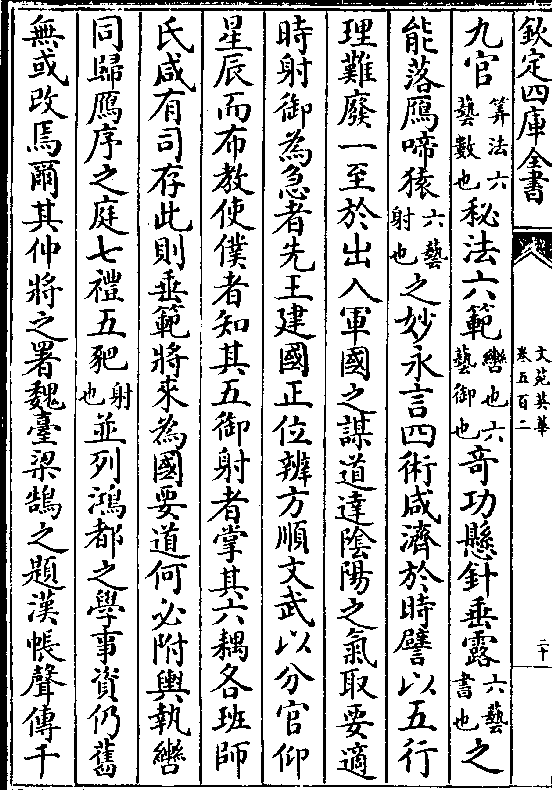 欽定四庫全書
文苑英華
卷五百二
二十
九官算法六藝數也秘法六範轡也六藝御也奇功懸針垂露六藝書也之
能落鴈啼猿六藝射也之妙永言四術咸濟於時譬以五行
理難廢一至於出入軍國之謀道達陰陽之氣取要適
時射御為急者先王建國正位辨方順文武以分官仰
星辰而布教使僕者知其五御射者掌其六耦各班師
氏咸有司存此則垂範將來為國要道何必附輿執轡
同歸鴈序之庭七禮五豝射也並列鴻都之學事資仍舊
無或改焉爾其仲將之署魏臺梁鵠之題漢帳聲傳千